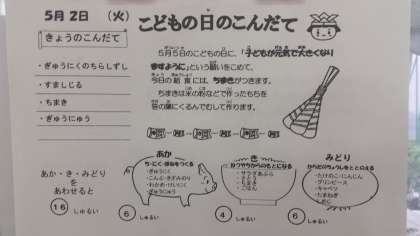 5月2日 (火)
こどもの日のこんだて
きょうのこんだて
・ぎゅうにくのちらしずし
・すましじる
・ちまき
・ぎゅうにゅう
5月5日のこどもの日に、「子どもが元気で大きくなり
ますように」という願いをこめて、
今日の給食には、ちまきがつきます。
ちまきは米の粉などで作ったもちを
笹の葉にくるんでむして作ります。
あか・き・みどり
をあわせると
16 しゅるい
あか
ち・にく・ほねをつくる
・ぎゅうにく
・ぎゅうにゅう
6 しゅるい
き
・サラダあぶら
・ちまき
・ごはん
4 しゅるい
みどり
からだのちょうしをととのえる
・たけのこ・にんじん
・グリンピース
・キャベツ
・たまねぎ
6 しゅるい